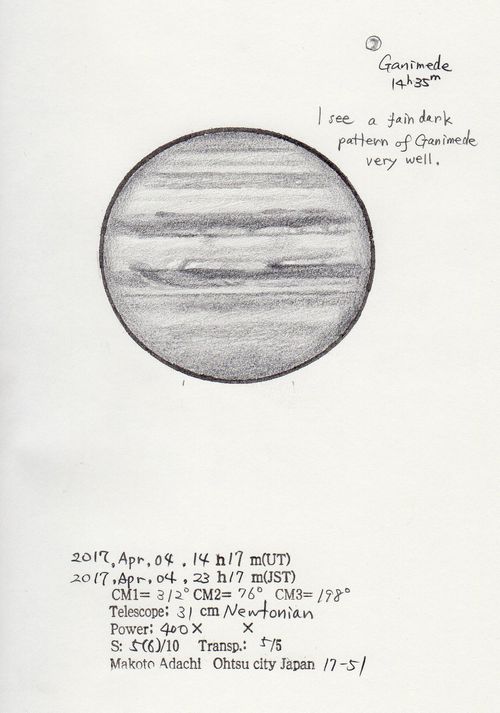 Ganimede
14h 35m
I see a fain dark
pattern of Ganimede
very well.
2017, Apr, 04, 14 h 17 m(UT)
2017, Apr, 04, 23 h 17 m(JST)
CM1= 312° CM2= 76° CM3= 198°
Telescope: 31 cm Newtonian
Power: 400× ×
S: 5(6)/10 Transp.: 5/5
Makoto Adachi Ohtsu city Japan 17-51